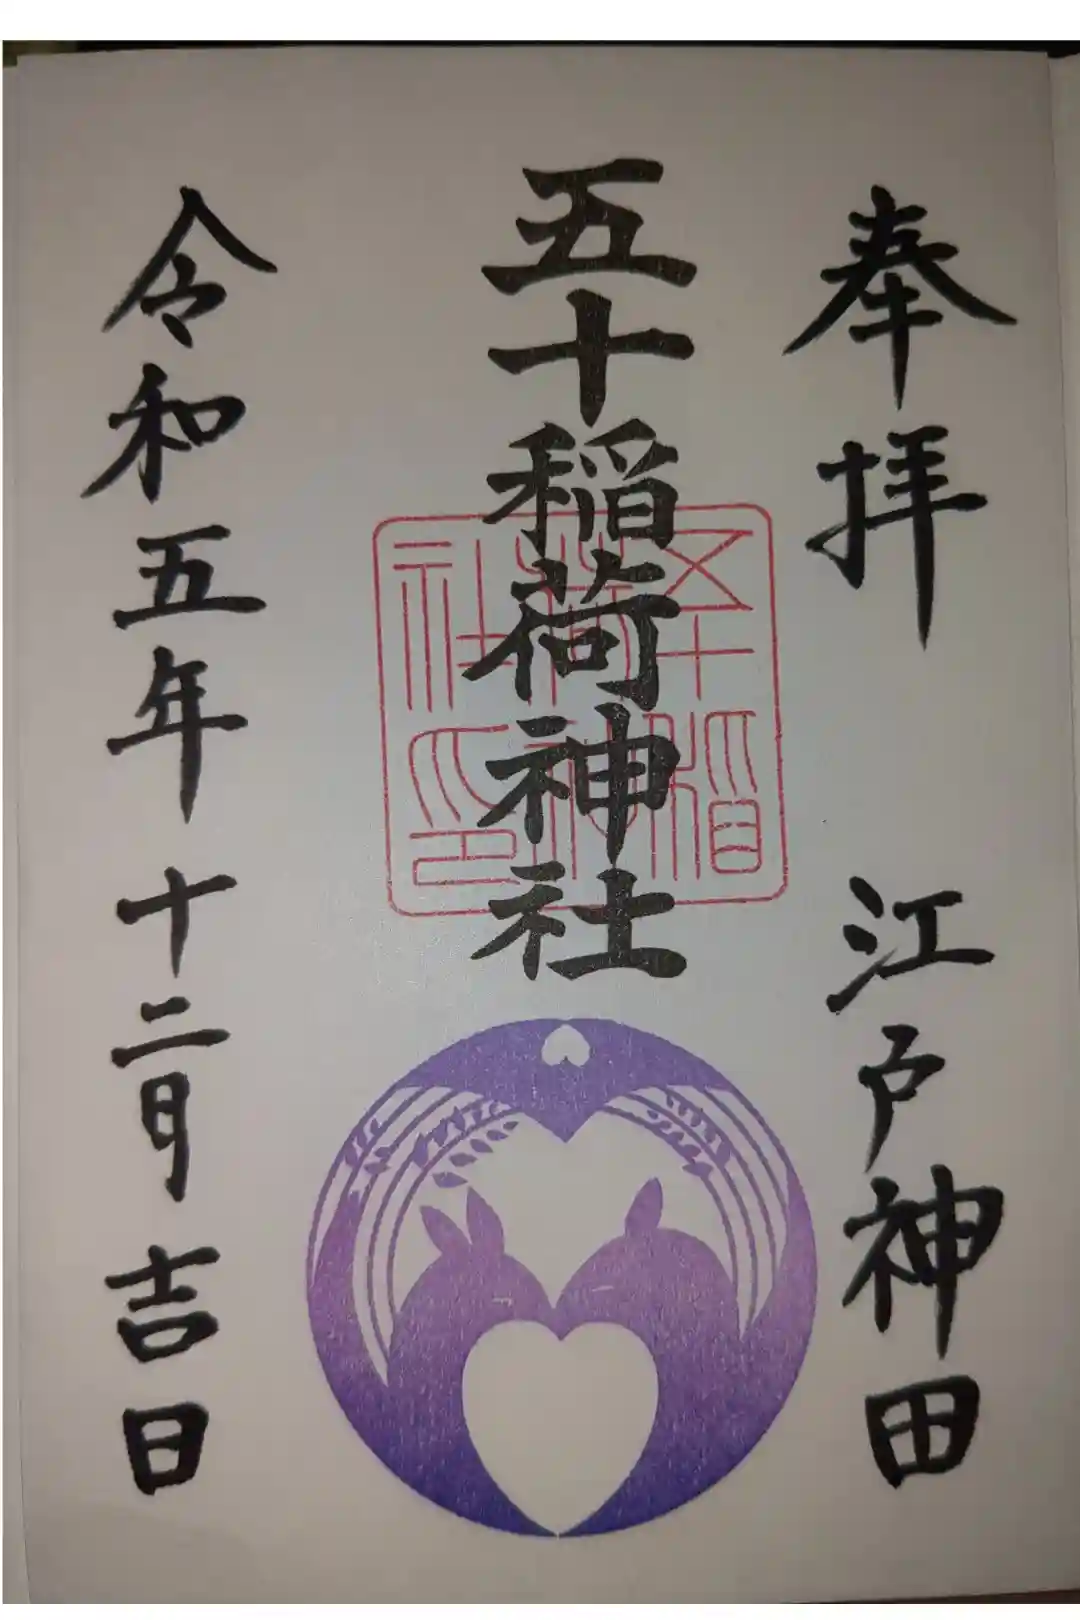 奉拝 江戸神田
五十稲荷神社
五十稲荷神社印
令和五年 十二月 吉日